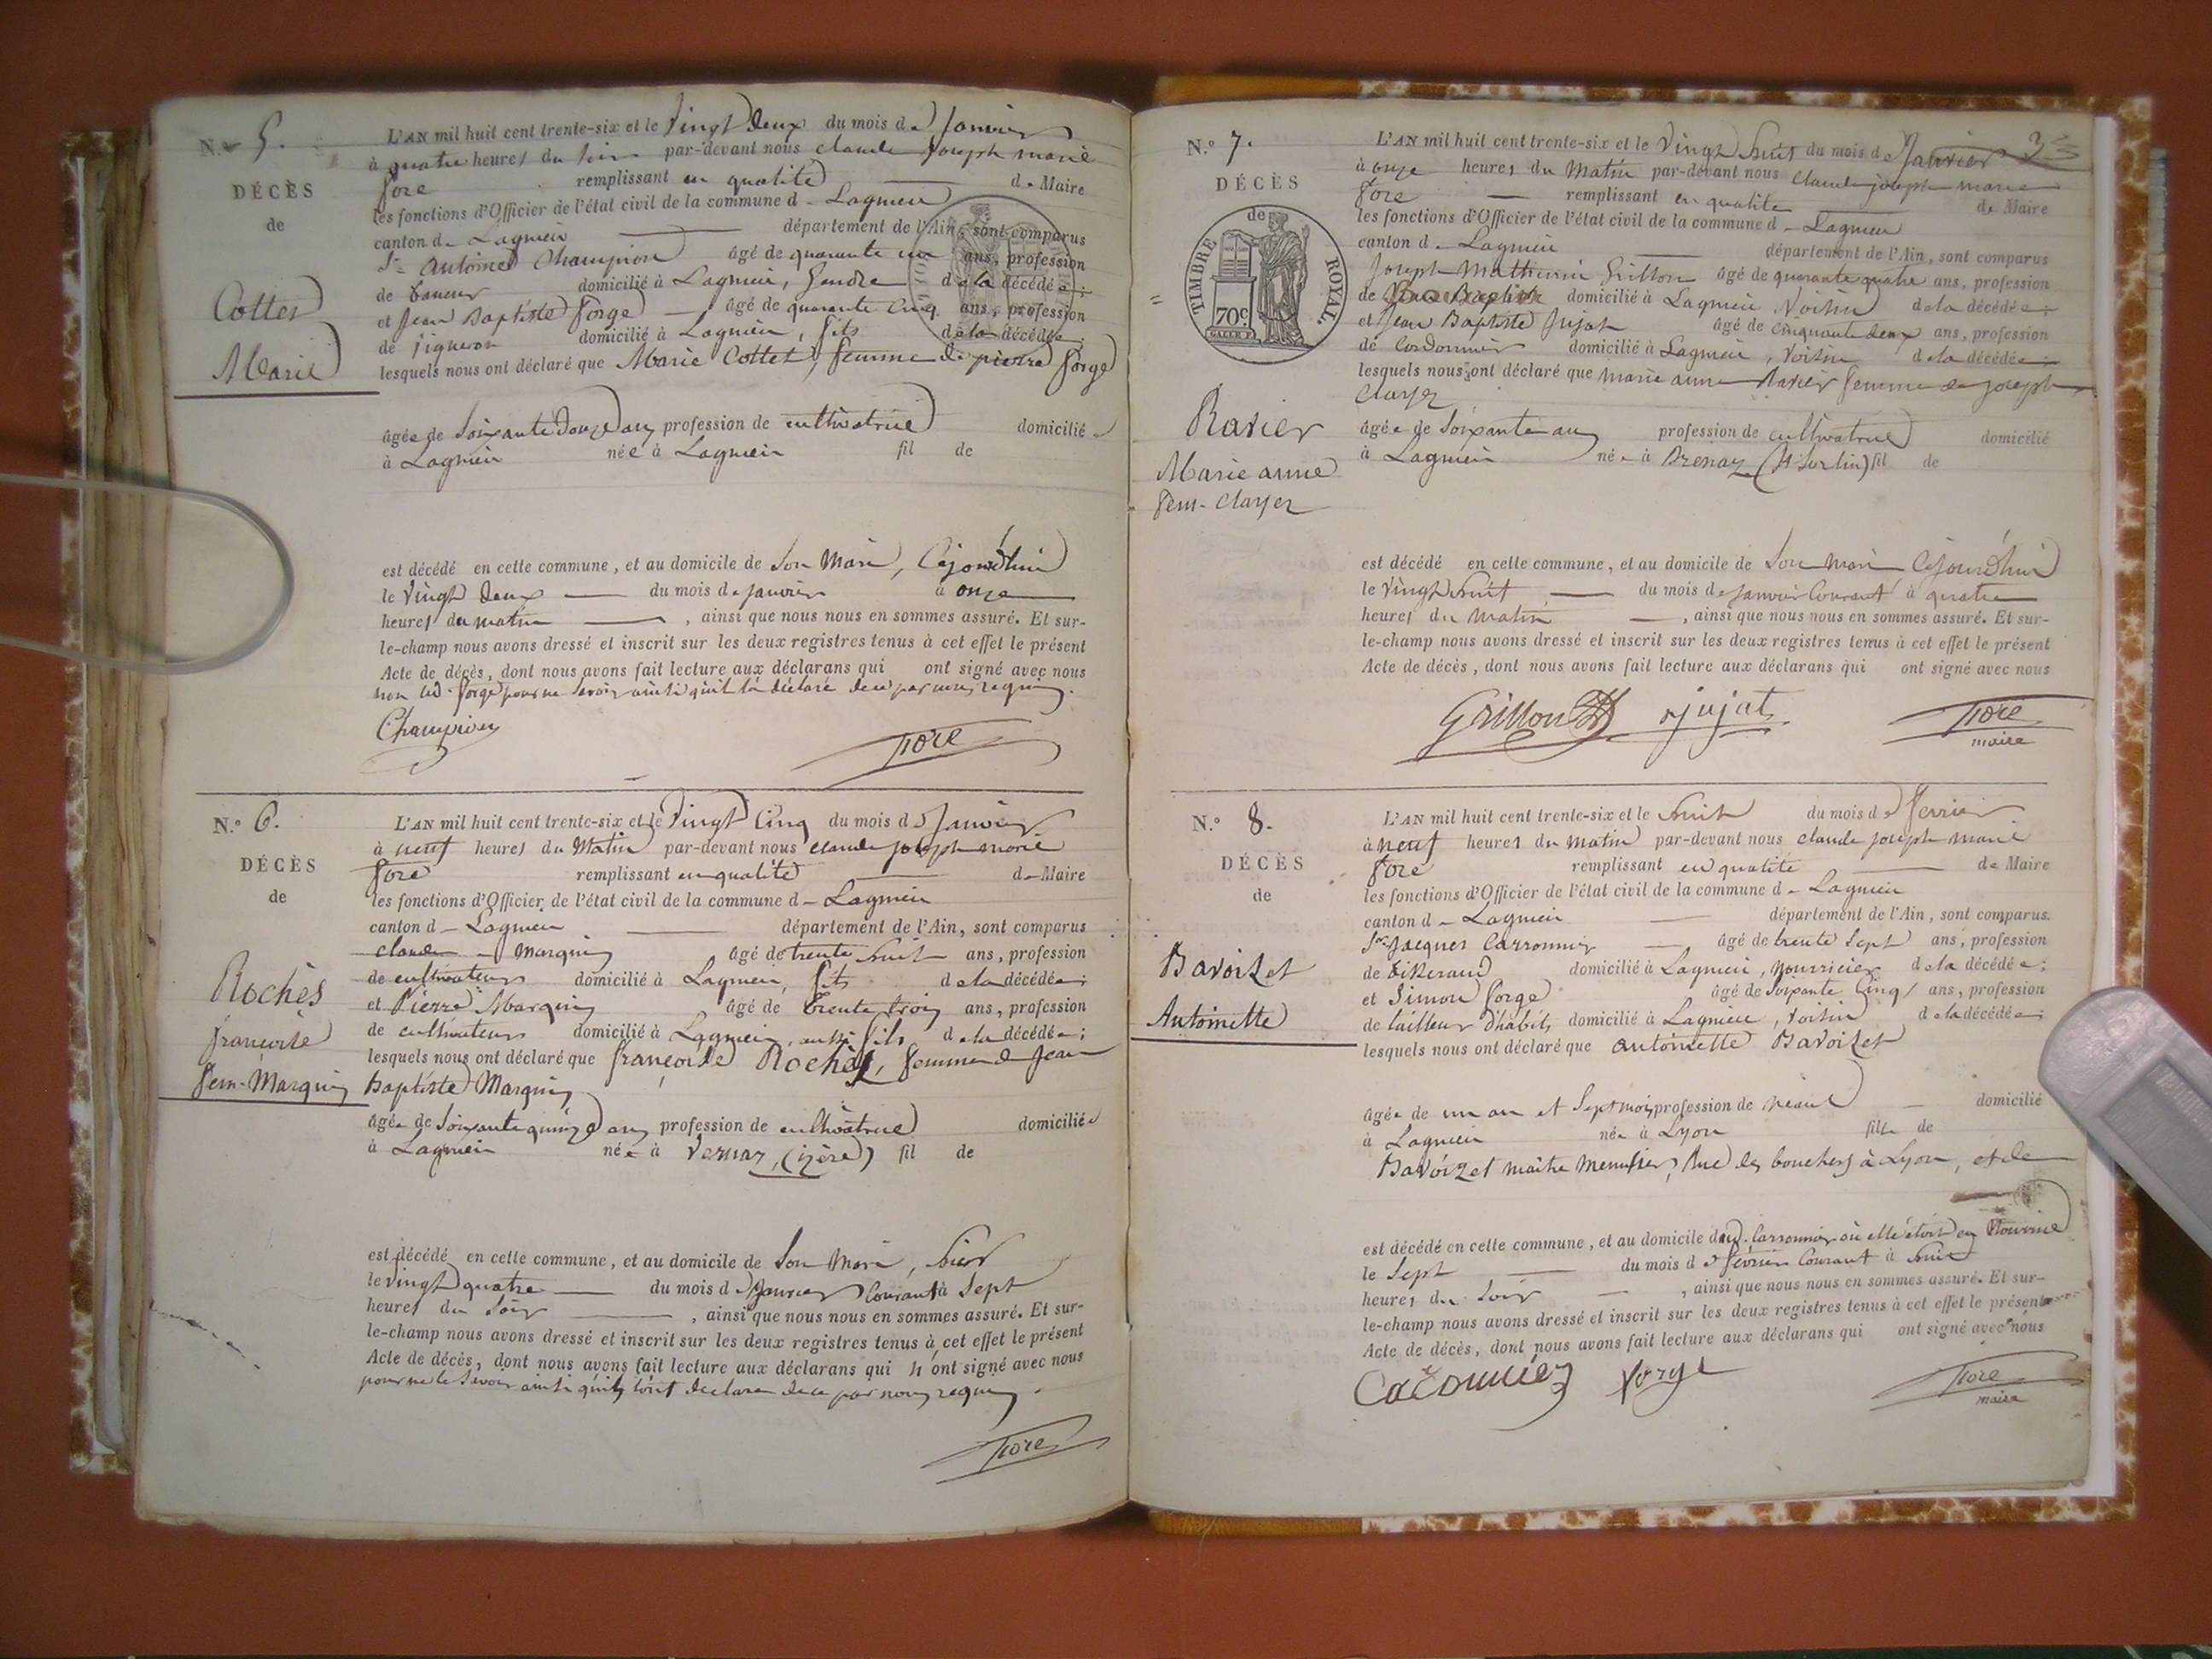 N.° 5.
DÉCÈS
de
Cottet
Marie
L'AN mil huit cent trente-six et le Vingt Deux du mois de Janvier
à quatre heures du soir par-devant nous claude joseph marie
fore remplissant en qualité de Maire
les fonctions d'Officier de l'état civil de la commune d Lagnieu
canton d Lagnieu département de l'Ain, sont comparus
Sr Antoine Champion âgé de quarante un ans, profession
de taneur domicilié à Lagnieu, Gendre de la décédée;
et Jean Baptiste forge âgé de quarante cinq ans, profession
de vigneron domicilié à Lagnieu, fils de la décédée;
lesquels nous ont déclaré que Marie Cottet, femme de pierre forge
âgée de Soixante Douze ans profession de cultivatrice domiciliée
à Lagnieu née à Lagnieu fil de
est décédé en cette commune, et au domicile de Son Mari, Cejourd'hui
le Vingt Deux du mois de janvier à onze
heures du matin, ainsi que nous nous en sommes assuré. Et sur-
le-champ nous avons dressé et inscrit sur les deux registres tenus à cet effet le présent
Acte de décès, dont nous avons fait lecture aux déclarans qui ont signé avec nous
non led. forge pour ne savoir ainsi qu'il l'a déclaré de ce par nous requis.
Champion
fore
N.° 6.
DÉCÈS
de
Rochès
françoise
fem-Marquis
L'AN mil huit cent trente-six et le Vingt Cinq du mois de Janvier
à neuf heures du Matin par-devant nous claude joseph marie
fore remplissant en qualité de Maire
les fonctions d'Officier de l'état civil de la commune d Lagnieu
canton d Lagnieu département de l'Ain, sont comparus
claude Marquis âgé de trente huit ans, profession
de cultivateur domicilié à Lagnieu, fils de la décédée;
et Pierre Marquis âgé de Trente trois ans, profession
de cultivateur domicilié à Lagnieu, aussi fils de la décédée;
lesquels nous ont déclaré que françoise Rochès, femme de Jean
Baptiste Marquis
âgée de Soixante quinze ans profession de cultivatrice domiciliée
à Lagnieu née à Vernas, (izère) fil de
est décédé en cette commune, et au domicile de Son Mari, hier
le Vingt quatre du mois de Janvier Courant à Sept
heures du Soir, ainsi que nous nous en sommes assuré. Et sur-
le-champ nous avons dressé et inscrit sur les deux registres tenus à cet effet le présent
Acte de décès, dont nous avons fait lecture aux déclarans qui n'ont signé avec nous
pour ne le Savoir ainsi qu'ils l'ont déclaré de ce par nous requis.
fore
3
N.° 7.
DÉCÈS
de
TIMBRE ROYAL
70c.
Ravier
Marie anne
fem- Clayer
L'AN mil huit cent trente-six et le Vingt huit du mois de Janvier
à onze heures du Matin par-devant nous Claude joseph marie
fore remplissant en qualité de Maire
les fonctions d'Officier de l'état civil de la commune d Lagnieu
canton d Lagnieu département de l'Ain, sont comparus
Joseph Mathurin Grillon âgé de quarante quatre ans, profession
de domicilié à Lagnieu Voisin de la décédée;
et Jean Baptiste Jujat âgé de cinquante deux ans, profession
de Cordonnier domicilié à Lagnieu, Voisin de la décédée;
lesquels nous ont déclaré que marie anne Ravier femme de joseph
Clayer
âgée de Soixante ans profession de cultivatrice domicilié
à Lagnieu née à Brenaz (St Sorlin) fil de
est décédé en cette commune, et au domicile de Son mari Cejourd'hui
le Vingt huit du mois de janvier Courant à quatre
heures du Matin, ainsi que nous nous en sommes assuré. Et sur-
le-champ nous avons dressé et inscrit sur les deux registres tenus à cet effet le présent
Acte de décès, dont nous avons fait lecture aux déclarans qui ont signé avec nous
Grillon jujat fore
maire
N.° 8.
DÉCÈS
de
Bavoizet
Antoinette
L'AN mil huit cent trente-six et le huit du mois de fevrier
à neuf heures du matin par-devant nous claude joseph marie
fore remplissant en qualité de Maire
les fonctions d'Officier de l'état civil de la commune d Lagnieu
canton d Lagnieu département de l'Ain, sont comparus.
Sr Jacques Carronnier âgé de trente Sept ans, profession
de tisserand domicilié à Lagnieu, nourricier de la décédée;
et Simon forge âgé de Soixante Cinq ans, profession
de tailleur d'habits domicilié à Lagnieu, voisin de la décédée;
lesquels nous ont déclaré que antoinette Bavoizet
âgée de un an et Sept mois profession de néant domicilié
à Lagnieu née à Lyon fille de
Bavoizet maître Menuisier, Rue des bouchers à Lyon, et de
est décédé en cette commune, et au domicile dud. Carronnier où elle étoit en Nourrice
le Sept du mois de février Courant à huit
heures du Soir, ainsi que nous nous en sommes assuré. Et sur-
le-champ nous avons dressé et inscrit sur les deux registres tenus à cet effet le présent
Acte de décès, dont nous avons fait lecture aux déclarans qui ont signé avec nous
Caronnier forge fore
maire